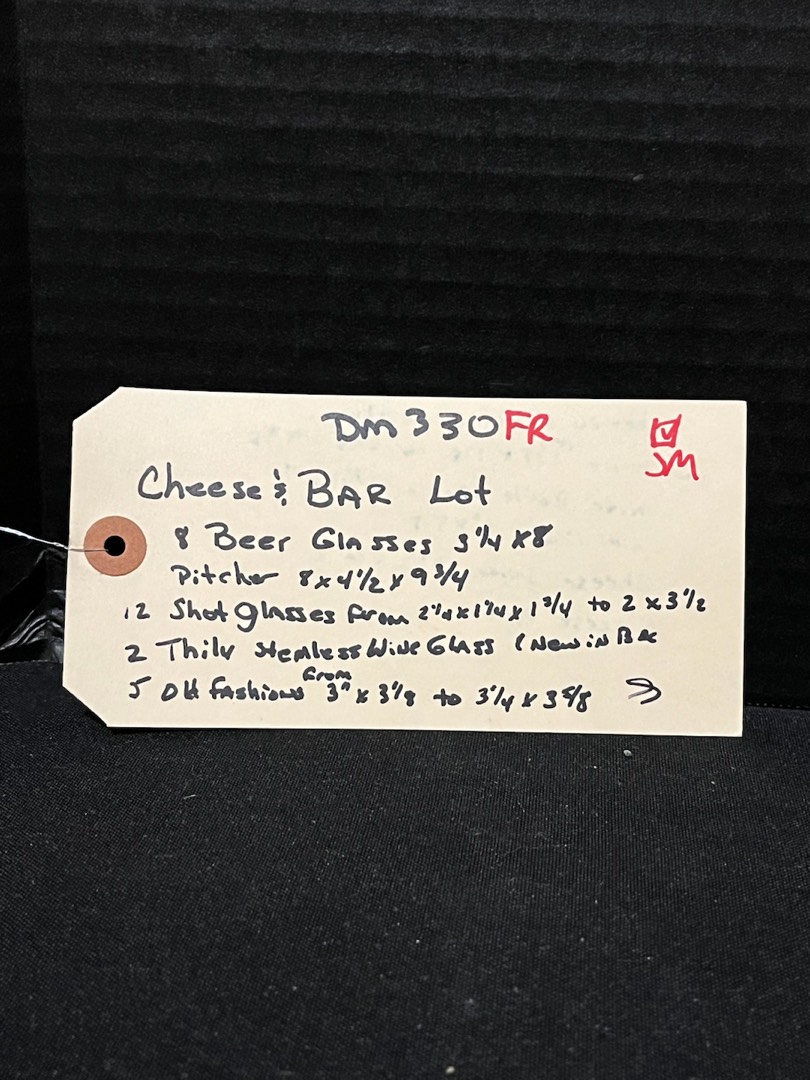 Dm330FR
JM
Cheese & BAR Lot
8 Beer Glasses 3 1/4 x8
Pitcher 8x4 1/2 x 9 3/4
12 Shot glasses from 2 1/4 x 1 1/4 x 1 3/4 to 2 x 3 1/2
2 stemless Wine Glass (New in
5 Old Fashions from 3" x 3 1/8 to 3 1/4 x 3 5/8